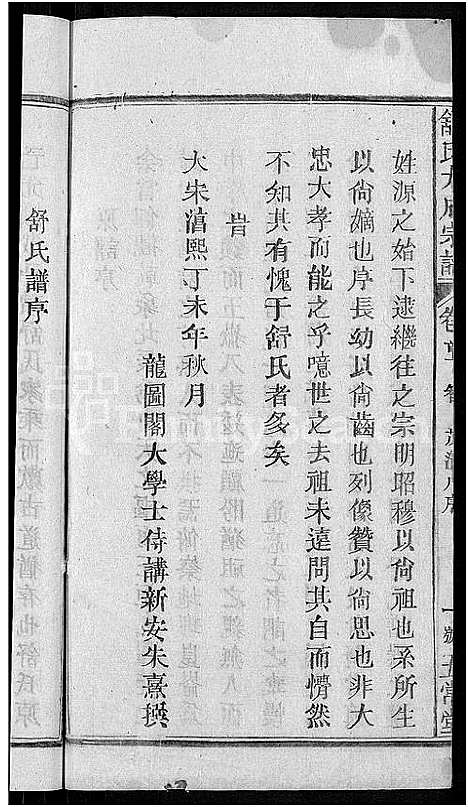 姓源之始下逮繼往之宗明昭穆以尙祖也系所生
以尙嫡也序長幼以尙齒也列像贊以尙思也非大
忠大孝而能之乎噫世之去祖未遠問其自而懵然
不知其有愧于舒氏者多矣
旹
大宋淳熙丁未年秋月
龍圖閣大學士侍講新安朱熹撰
舒氏譜序